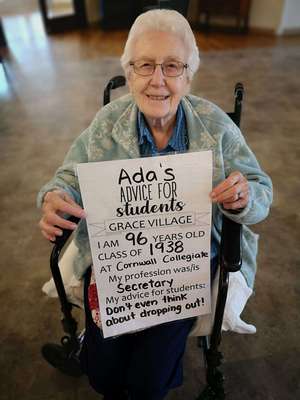 Ada's
ADVICE FOR
students
GRACE VILLAGE
I AM 96 YEARS OLD
CLASS OF 1938
AT Cornwall Collegiate
My profession was/is
Secretary
My advice for students:
Don't even think
about dropping out!